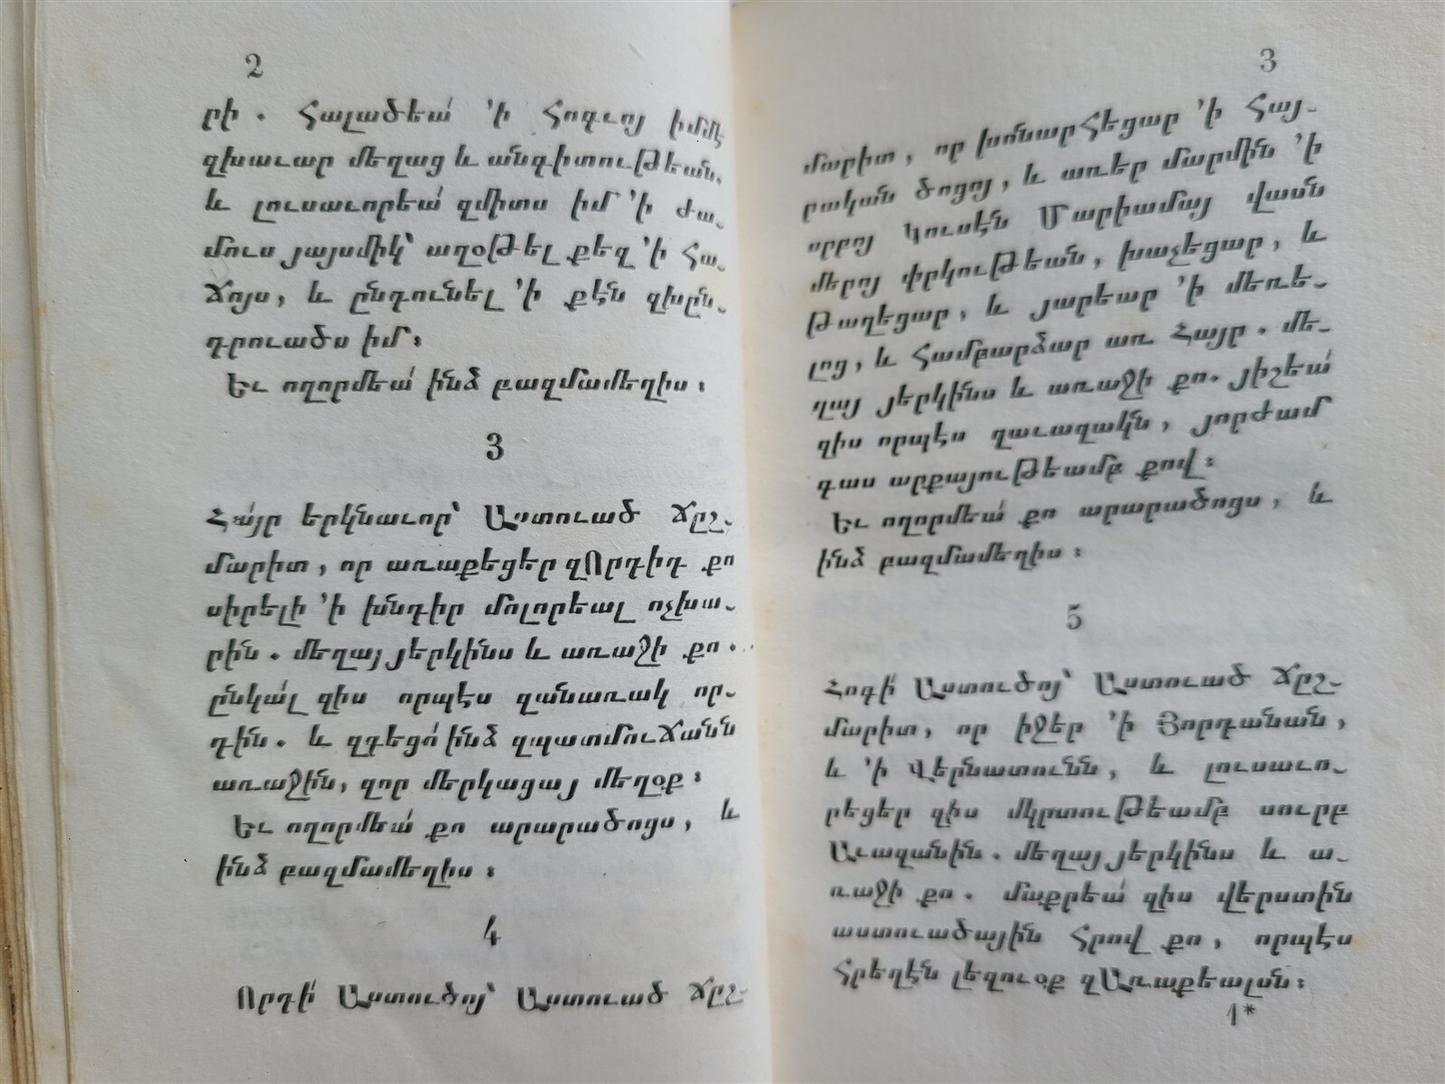 2
րի. հալածեա՛ ՚ի հոգւոյ իմմէ
զխաւար մեղաց և անգիտութեան.
և լուսաւորեա՛ զմիտս իմ ՚ի ժա֊
մուս յայսմիկ՝ աղօթել քեզ ՚ի հա֊
ճոյս, և ընդունել ՚ի քէն զխըն֊
դրուածս իմ։
Եւ ողորմեա՛ ինձ բազմամեղիս։
3
Հա՛յր երկնաւոր՝ Աստուած ճըշ֊
մարիտ, որ առաքեցեր զՈրդիդ քո
սիրելի ՚ի խնդիր մոլորեալ ոչխա֊
րին. մեղայ յերկինս և առաջի քո.
ընկա՛լ զիս որպէս զանառակ որ֊
դին. և զգեցո՛ ինձ զպատմուճանն
առաջին, զոր մերկացայ մեղօք։
Եւ ողորմեա՛ քո արարածոցս, և
ինձ բազմամեղիս։
4
Որդի՛ Աստուծոյ՝ Աստուած ճըշ֊
3
մարիտ, որ խոնարհեցար ՚ի հայ֊
րական ծոցոյ, և առեր մարմին ՚ի
սրբոյ Կուսէն Մարիամայ վասն
մերոյ փրկութեան, խաչեցար, և
թաղեցար, և յարեար ՚ի մեռե֊
լոց, և համբարձար առ Հայր. մե֊
ղայ յերկինս և առաջի քո. յիշեա՛
զիս որպէս զաւազակն, յորժամ
գաս արքայութեամբ քով։
Եւ ողորմեա՛ քո արարածոցս, և
ինձ բազմամեղիս։
5
Հոգի՛ Աստուծոյ՝ Աստուած ճըշ֊
մարիտ, որ իջեր ՚ի Յորդանան,
և ՚ի Վերնատունն, և լուսաւո֊
րեցեր զիս մկրտութեամբ սուրբ
Աւազանին. մեղայ յերկինս և ա֊
ռաջի քո. մաքրեա՛ զիս վերստին
աստուածային հրով քո, որպէս
հրեղէն լեզուօք զԱռաքեալսն։
1*